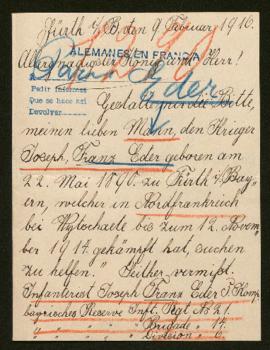 Fürth i/B. den 9. Februar 1916.
ALEMANES EN FRANCIA
Allergnädigster König und Herr!
Eder
Pedir informes
Que se hace así
Devolver
Gestatten die Bitte,
meinen lieben Mann, den Krieger
Joseph, Franz Eder geboren am
22. Mai 1890. zu Fürth i/Bay-
ern, welcher in Nordfrankreich
bei Wytschaete bis zum 12. Novem-
ber 1914 gekämpft hat, suchen
zu helfen." Seither vermißt.
Infanterist Joseph Franz Eder Komp.
bayrisches Reserve Inft. Regt. No. 21.
" " " Brigade
" " " Division 6.